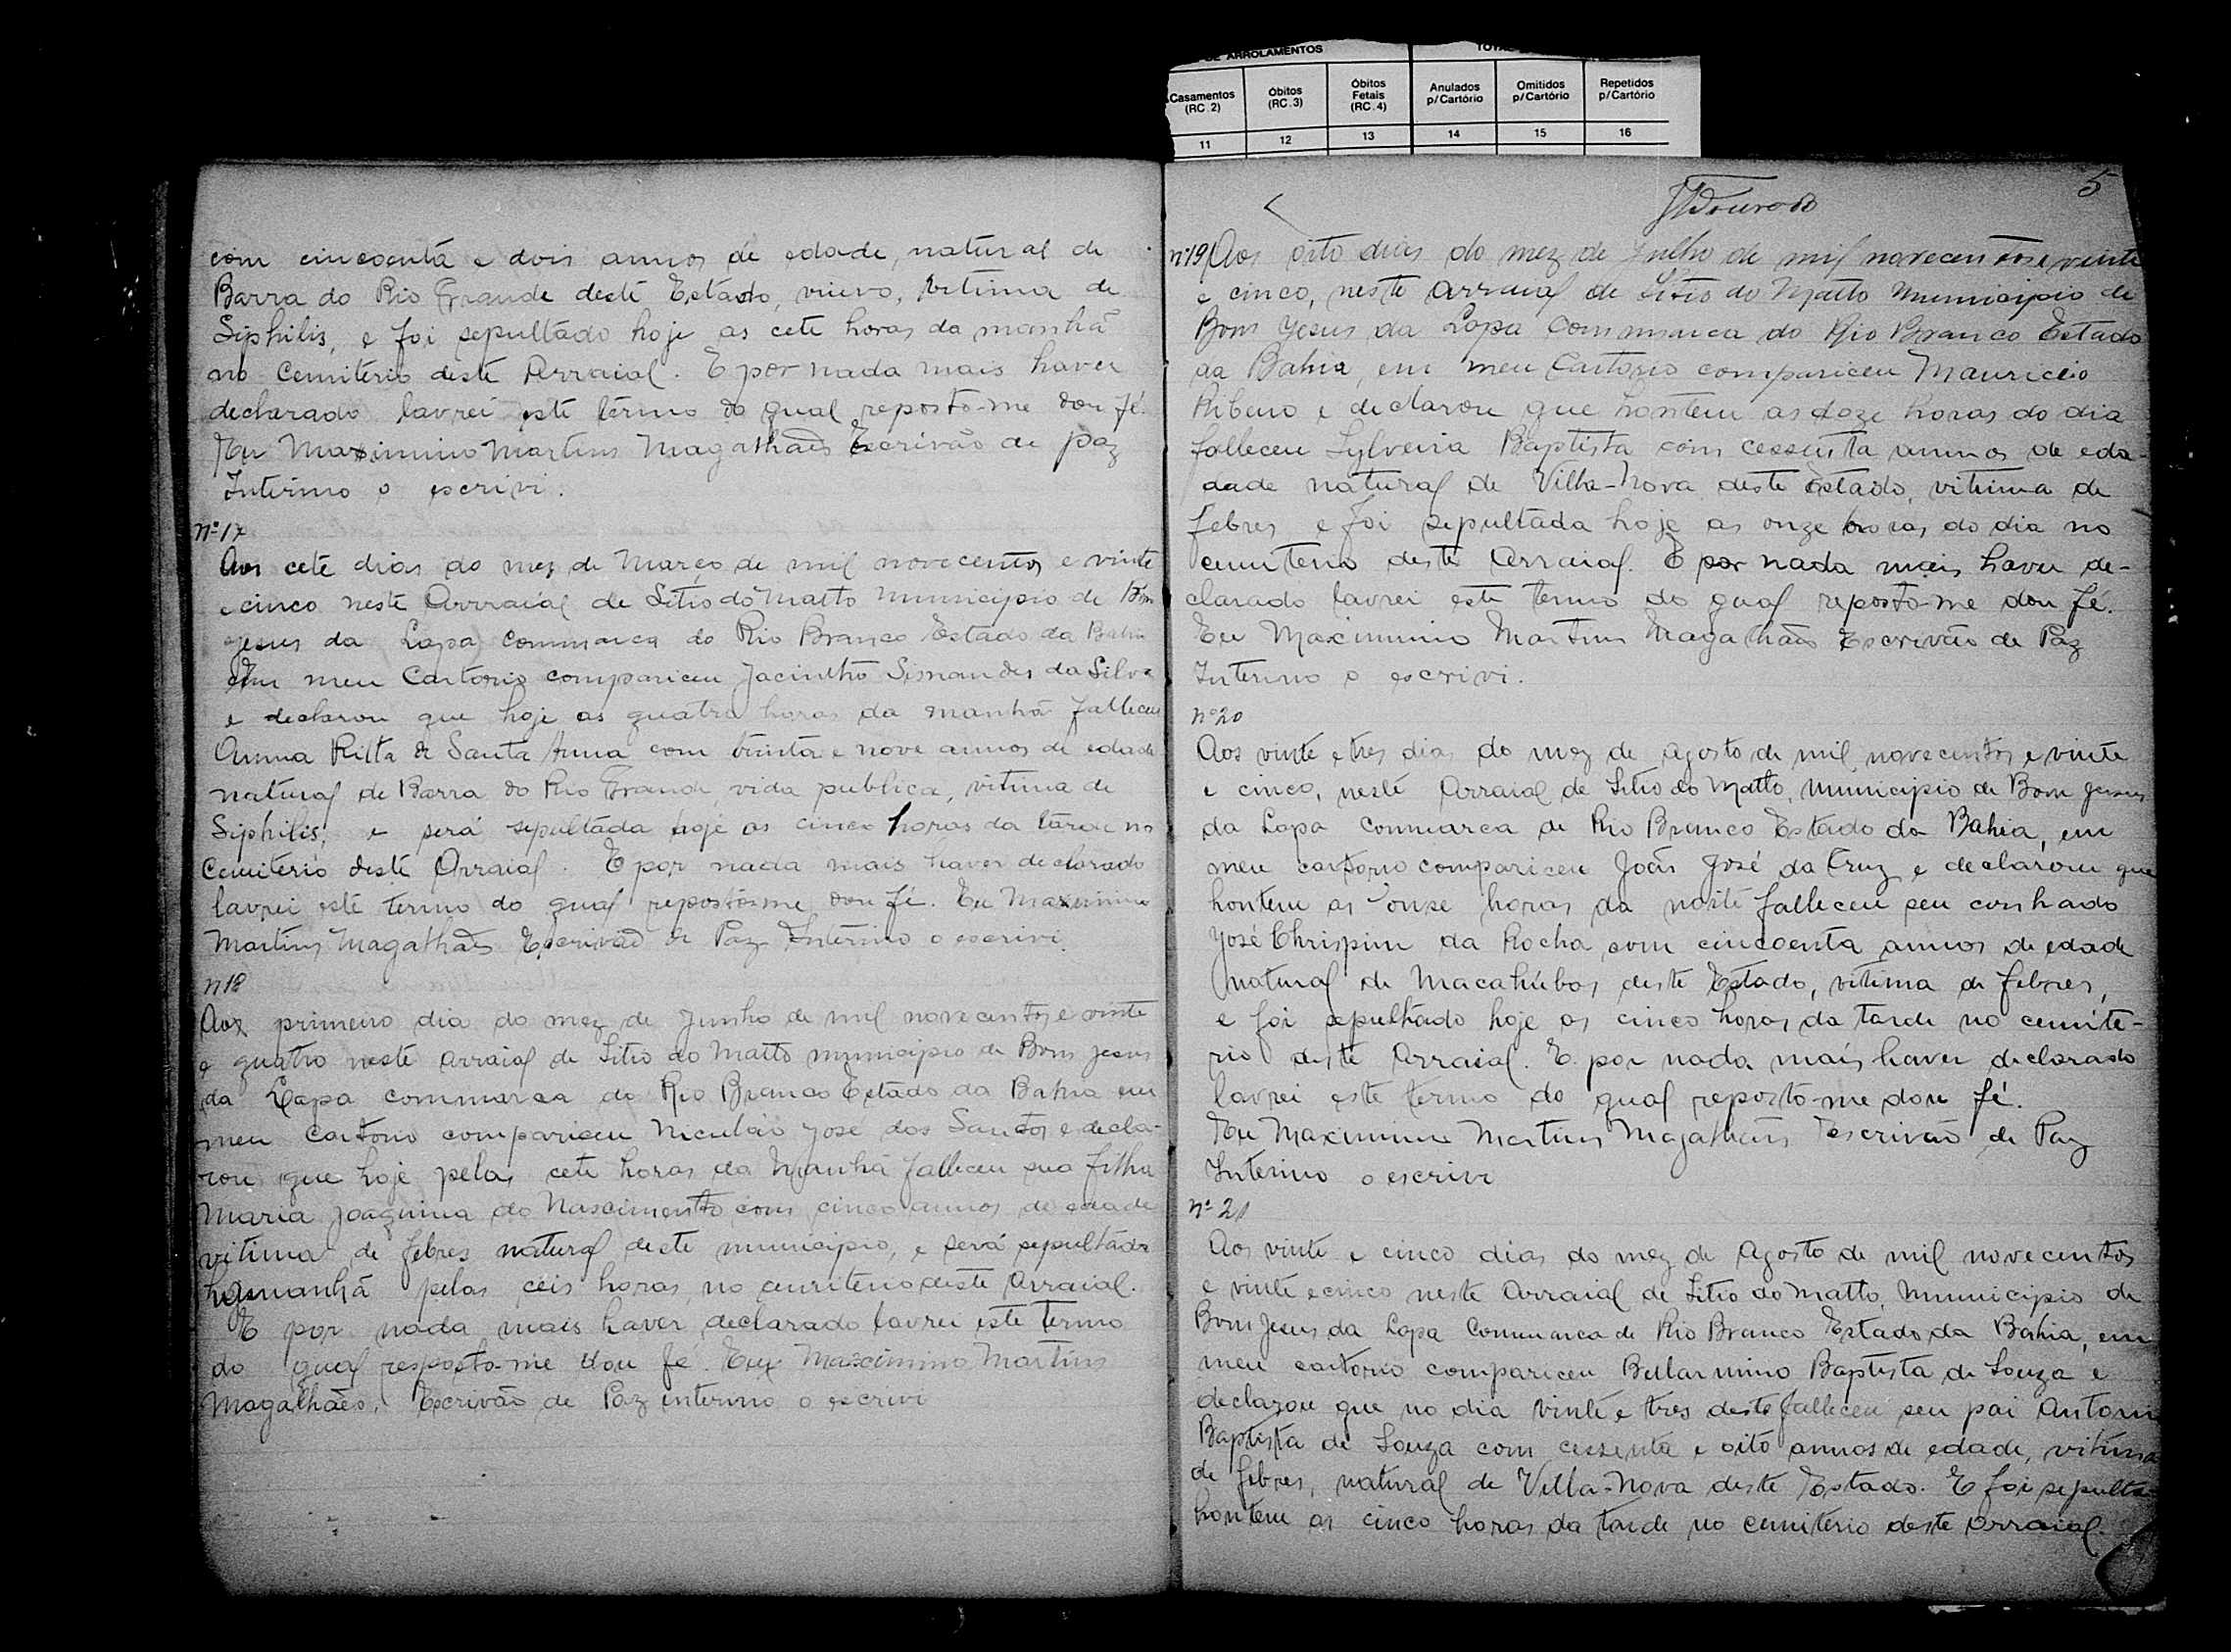 DE ARROLAMENTOS
Casamentos (RC.2)
Óbitos (RC.3)
Óbitos Fetais (RC.4)
Anulados p/Cartório
Omitidos p/Cartório
Repetidos p/Cartório
11 12 13 14 15 16
com cincoenta e dois annos de edade, natural de
Barra do Rio Grande deste Estado, viuvo, vitima de
Siphilis, e foi sepultado hoje as cete horas da manhã
no Cemiterio deste Arraial. E por nada mais haver
declarado lavrei este termo do qual reposto-me dou fé.
Eu Maximino Martins Magalhães Escrivão de paz
Interino o escrivi.
nº 17
Aos cete dias do mez de Março de mil novecentos e vinte
e cinco neste Arrraial de Sitio do Matto Municipio de Bom
Jesus da Lapa commarca do Rio Branco Estado da Bahia
Em meu Cartorio compariceu Jacintho Sisnandes da Silva
e declarou que hoje as quatro horas da manhã falleceu
Anna Ritta de Santa Anna com trinta e nove annos de edade
natural de Barra do Rio Grande, vida publica, vitima de
Siphilis; e será sepultada hoje as cinco horas da tarde no
Cemiterio deste Arraial. E por nada mais haver declarado
lavrei este termo do qual reposto-me dou fé. Eu Maximino
Martins Magalhães Escrivão de Paz Interino o escrivi.
n 18
Aos primeiro dia do mez de Junho de mil novecentos e vinte
e quatro neste arraial de Sitio do Matto municipio de Bom Jesus
da Lapa commarca do Rio Branco Estado da Bahia em
meu Cartorio compariceu Niculáo José dos Santos e decla-
rou que hoje pelas cete horas da Manhã falleceu sua filha
Maria Joaquina do Nascimento com cinco annos de edade
vitima de febres natural deste municipio, e será sepultada
manhã pelas ceis horas no cemiterio deste Arraial.
E por nada mais haver declarado lavrei este termo
do qual resposto-me dou fé. Eu Maximino Martins
Magalhães. Escrivão de Paz interino o escrivi
5
nº 19 Aos oito dias do mez de Julho de mil novecentos e vinte
e cinco, neste arraial de Sitio do Matto Municipio de
Bom Jesus da Lapa Commarca do Rio Branco Estado
da Bahia, em meu Cartorio compariceu Mauricio
Ribeiro e declarou que hontem as doze horas do dia
falleceu Sylveria Baptista com cessenta annos de eda-
dade natural de Villa-Nova deste Estado, vitima de
febres e foi sepultada hoje as onze horas do dia no
cemiterio deste Arraial. E por nada mais haver de-
clarado lavrei este termo do qual reposto-me dou fé.
Eu Maximino Martins Magalhães Escrivão de Paz
Interino o escrivi.
nº 20
Aos vinte e tres dias do mez de agosto de mil novecentos e vinte
e cinco, neste Arraial de Sitio do Matto, Municipio de Bom Jesus
da Lapa Commarca de Rio Branco Estado da Bahia, em
meu cartorio compariceu João José da Cruz e declarou que
hontem as onse horas da noite falleceu seu cunhado
José Chrispim da Rocha com cincoenta annos de edade
natural de Macahúbas deste Estado, vitima de febres,
e foi sepultado hoje as cinco horas da tarde no cemite-
rio deste Arraial. E por nada mais haver declarado
lavrei este termo do qual reposto-me dou fé.
Eu Maximino Martins Magalhães Escrivão de Paz
Interino o escrivi
nº 21
Aos vinte e cinco dias do mez de Agosto de mil novecentos
e vinte e cinco neste Arraial de Sitio do Matto, Municipio de
Bom Jesus da Lapa Commarca de Rio Branco Estado da Bahia, em
meu cartorio compariceu Bellarmino Baptista de Souza e
declarou que no dia vinte e tres deste falleceu seu pai Antonio
Baptista de Souza com cessenta e oito annos de edade, vitima
de febres, natural de Villa-Nova deste Estado. E foi sepulta
hontem as cinco horas da tarde no cemiterio deste Arraial.